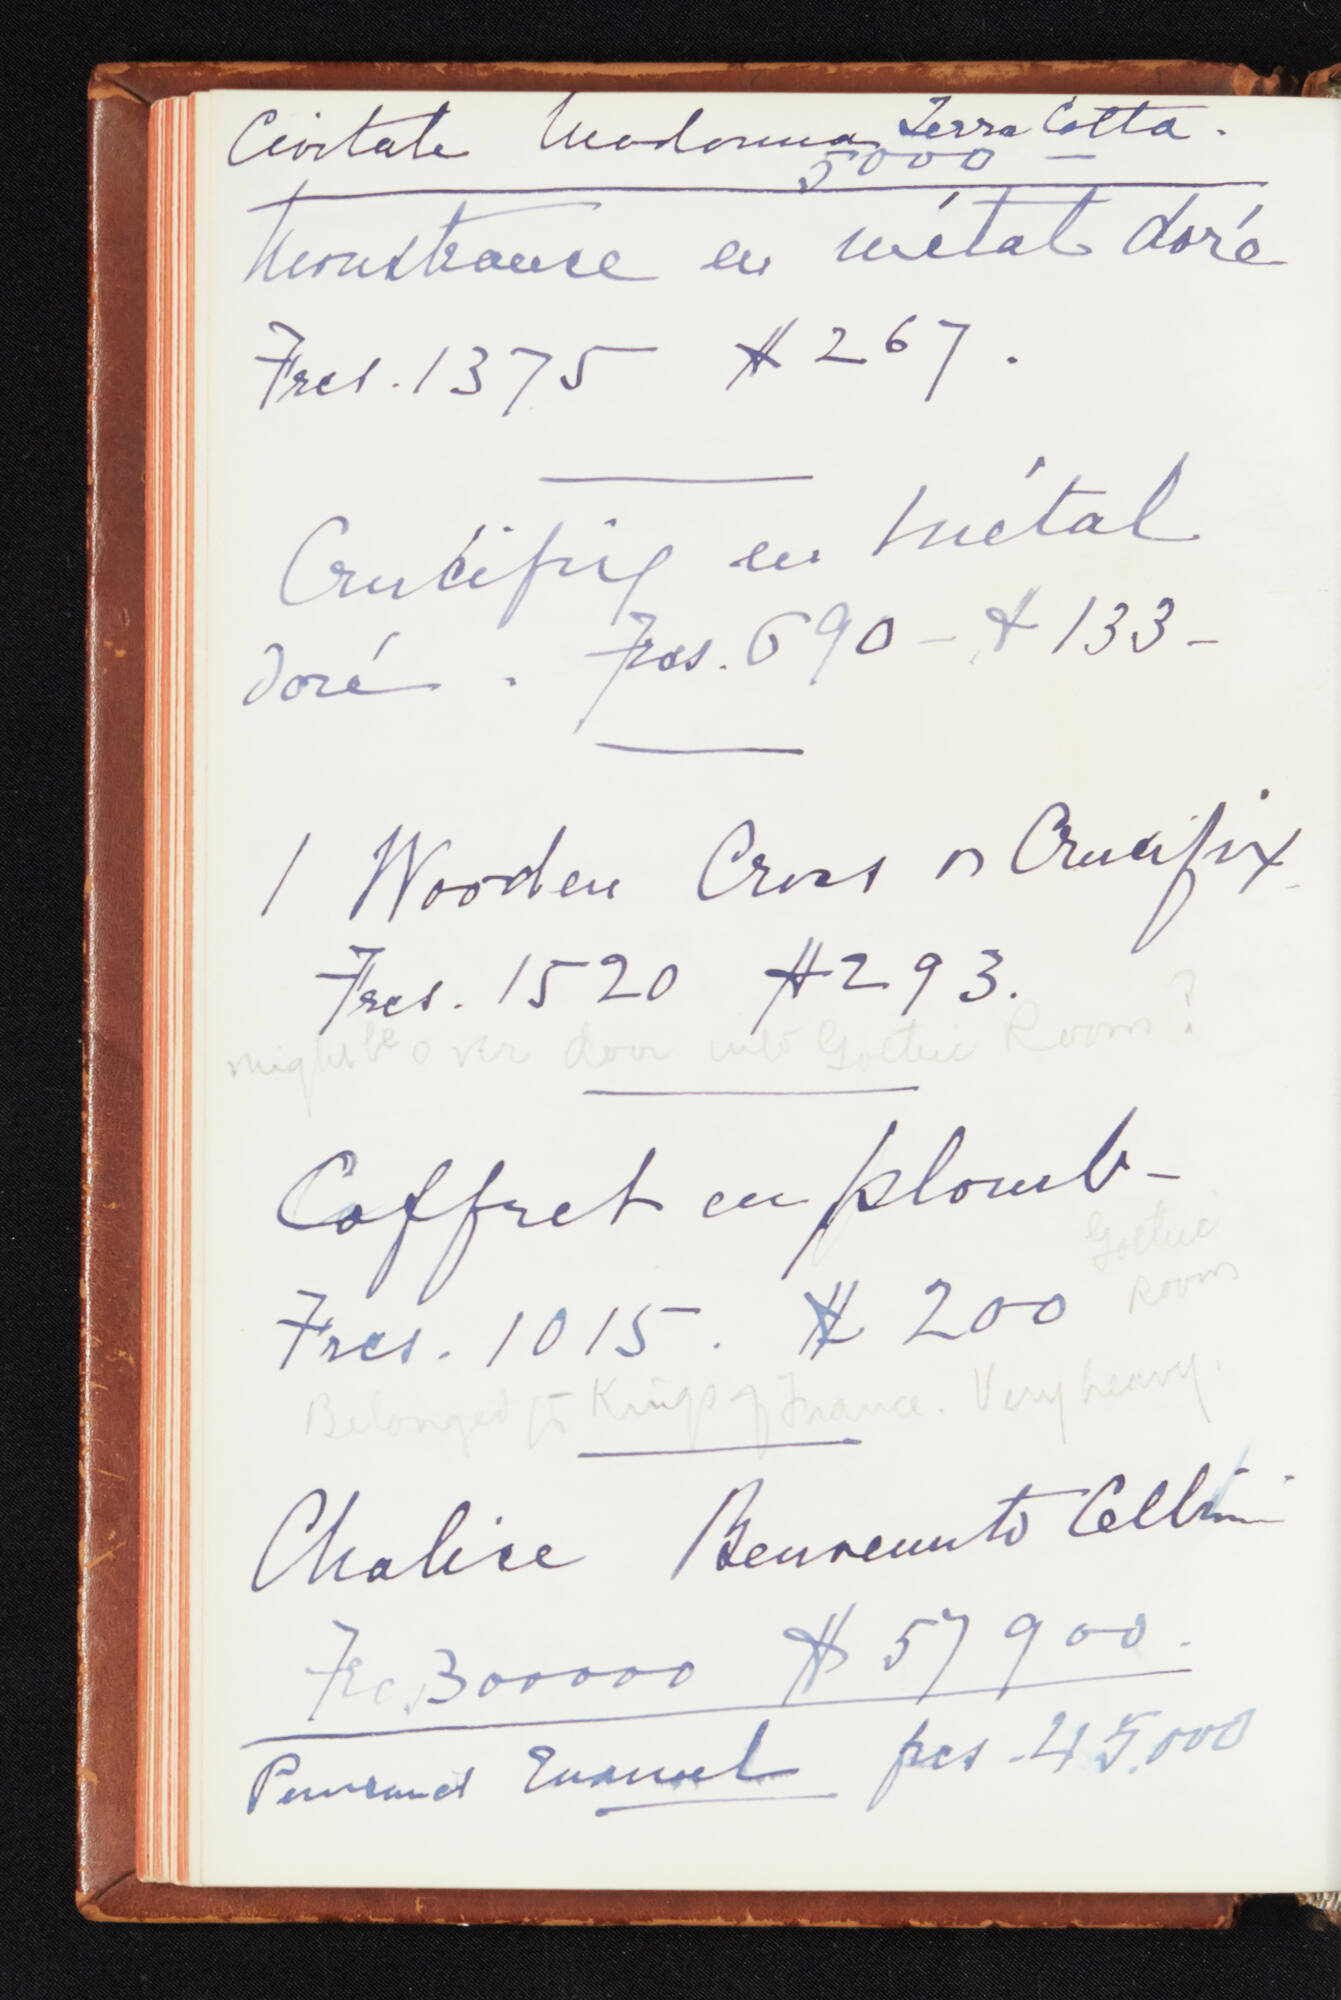 Civitale Madonna Terra Cotta.
5000 —
Monstrance en métal doré
Frcs. 1375 — $ 267.
Crucifix en métal
doré. Frcs. 690 — $ 133 —
1 Wooden Cross or Crucifix.
Frcs. 1520 $293.
might be over door into Gothic Room?
Coffret en plomb —
Gothic
Room
Frcs. 1015. $ 200
Belonged to Kings of France. Very heavy.
Chalice Benvenuto Cellini
Frc. 300000 $ 57900.
Enamel frcs. 45.000